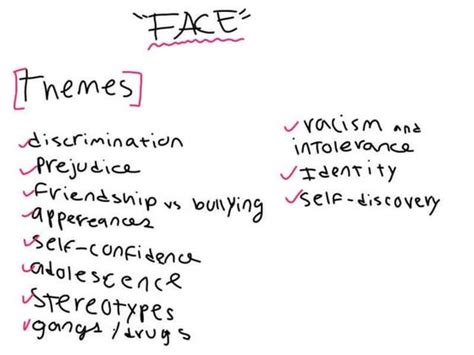 "FACE"
[Themes]
discrimination
prejudice
friendship vs bullying
appereances
self-confidence
adolescence
stereotypes
gangs/drugs
racism and
intolerance
Identity
self-discovery